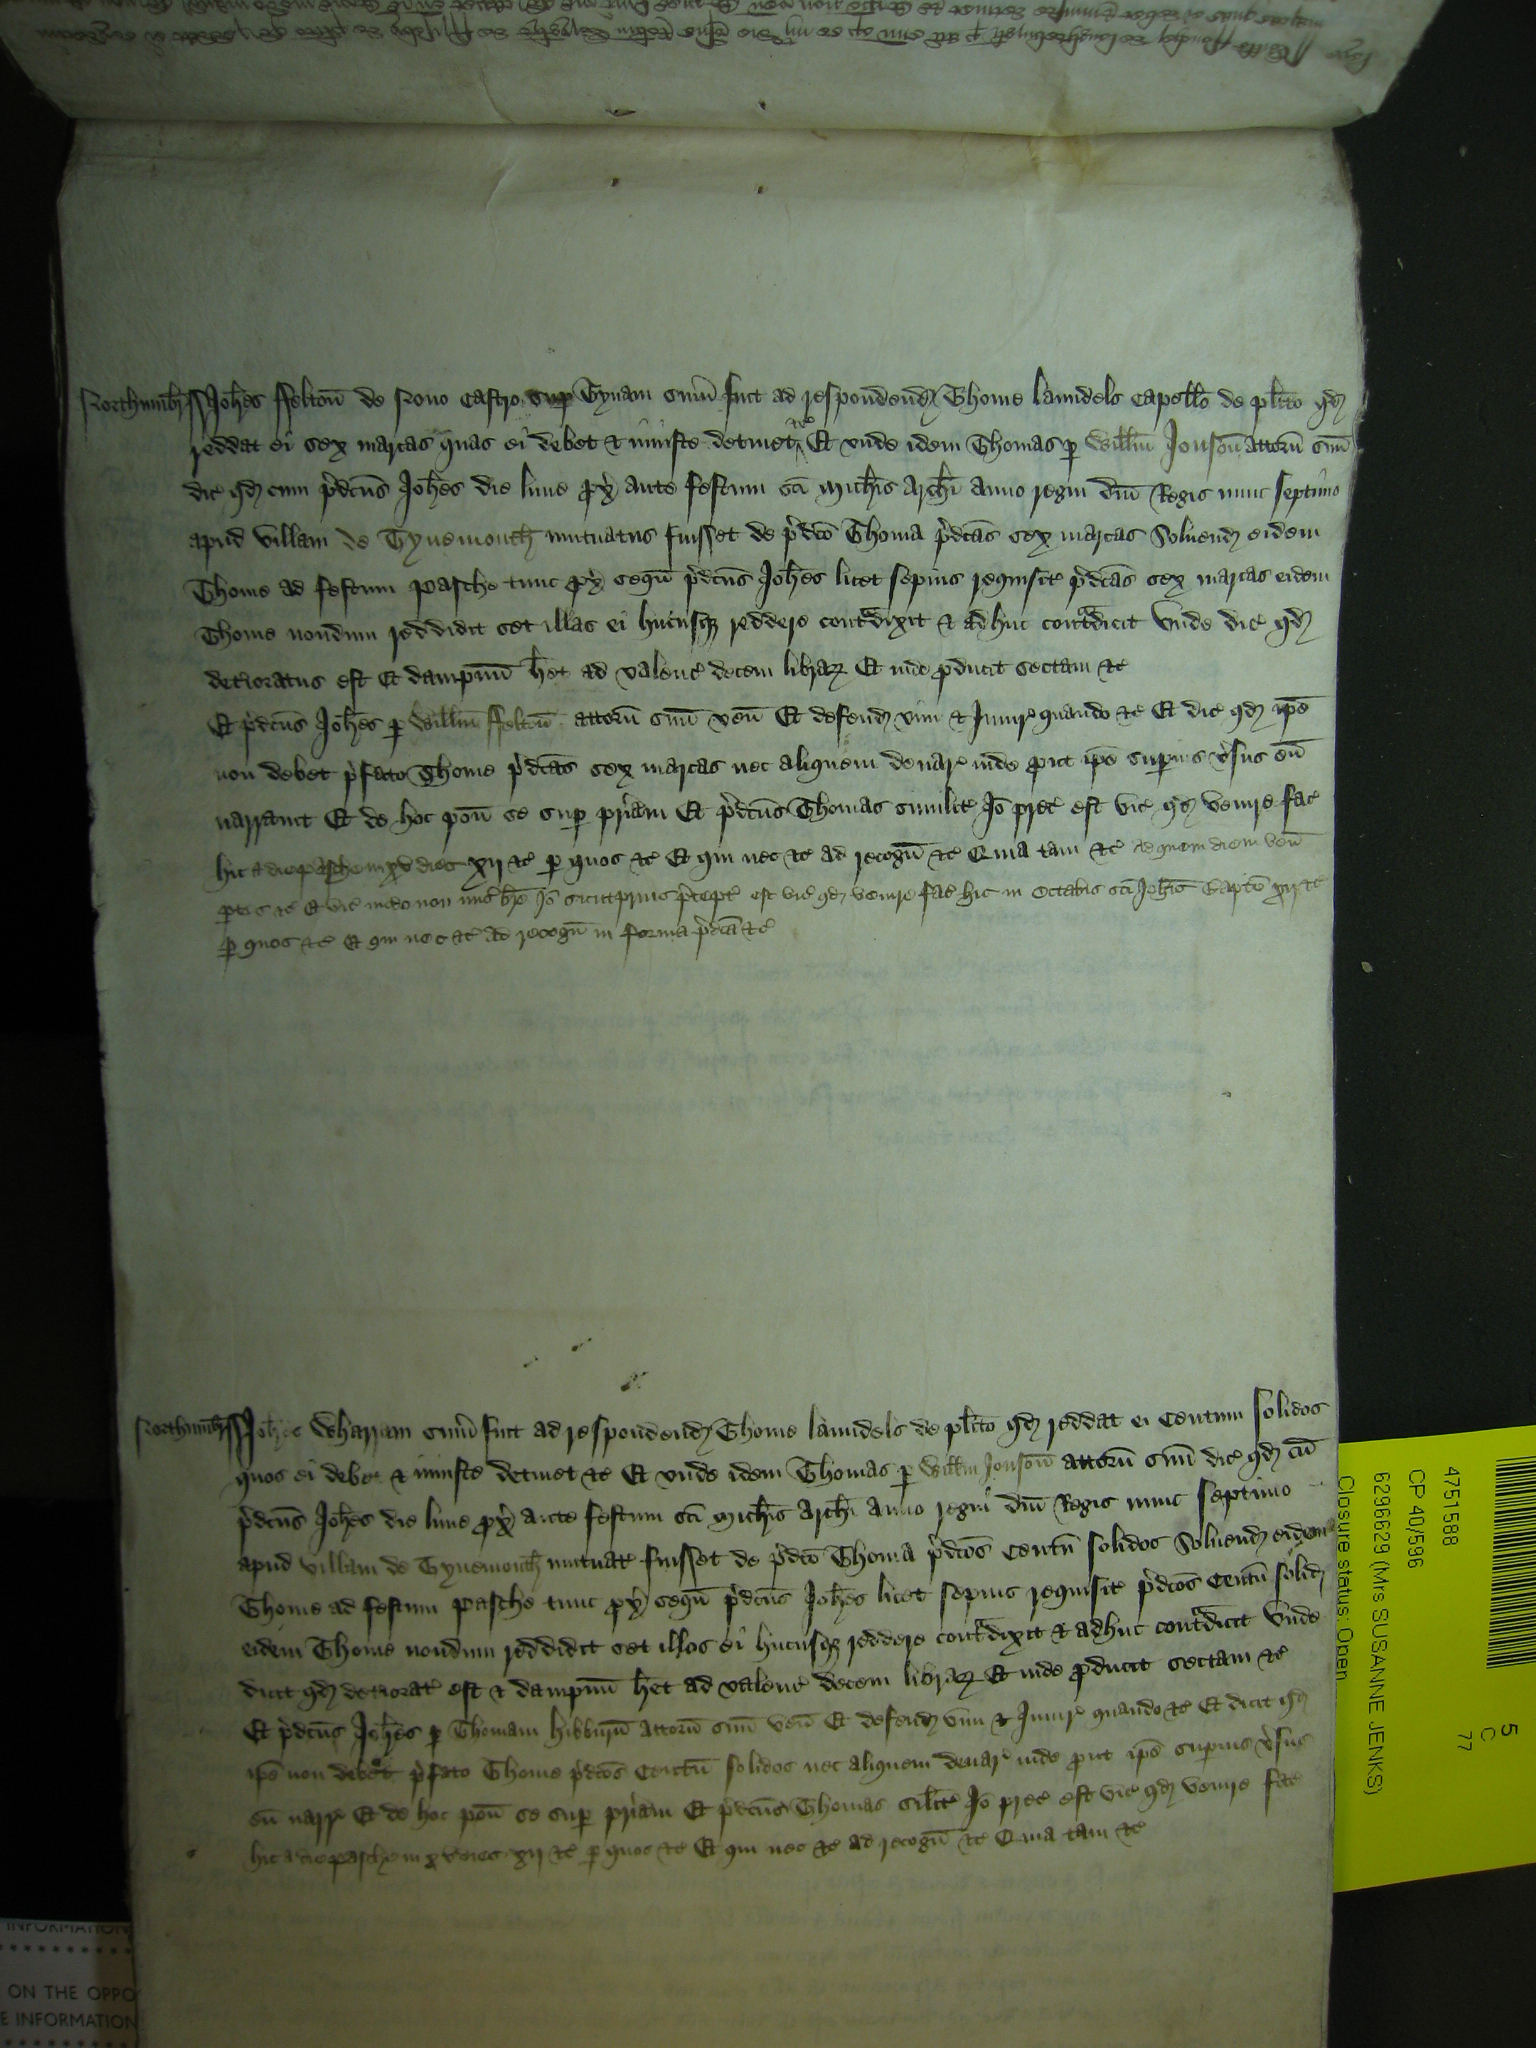 Northumbr̃ Joh̃es Felton̄ de Novo Castro sup Tynam sum̄ fuit ad respondend̃ Thome laundels Capello de pl̃ito qđ
reddat ei sex marcas quas ei debet & iniuste detinet &c̃ Et unde idem Thomas p Will̃m Jonson̄ attorñ suũ
dic̃ qđ cum p̃dc̃us Joh̃es die lune px̃ ante festum sc̃i Mich̃is Arch̃i anno regni dñi Regis nunc septimo
apud villam de Tynemouth̃ mutuatus fuisset de p̃dc̃o Thoma p̃dc̃as sex marcas Solvend̃ eidem
Thome ad festum Pasche tunc px̃ seqũ p̃dc̃us Joh̃es licet sepius requisit̃ p̃dc̃as sex marcas eidem
Thome nondum reddidit set illas ei hucusq̃ reddere contradixit & adhuc contradicit Unde dic̃ qđ
deterioratus est Et dampnũ h̃et ad valenc̃ decem librar̃ Et inde pducit sectam &c̃
Et p̃dc̃us Joh̃es p Will̃m Felton̄ attorñ suũ veñ Et defend̃ vim & Iniur̃ quando &c̃ Et dic̃ qđ ip̃e
non debet p̃fato Thome p̃dc̃as sex marcas nec aliquem denar̃ inde put ip̃e superius v̉sus eũ
narravit Et de hoc poñ se sup pr̃iam Et p̃dc̃us Thomas similit̃ Jõ prec̃ est vic̃ qđ venire fac̃
hic a die pasche in xv dies xij &c̃ p quos &c̃ Et qui nec &c̃ ad recogñ &c̃ Quia tam &c̃ Ad quem diem veñ
ptes &c̃ Et vic̃ inde non mis̃ br̃e Jõ sicut prius p̃cept̃ est vic̃ qđ venire fac̃ hic in Octabis sc̃i Joh̃is Bapt̃e xij &c̃
p quos &c̃ Et qui nec &c̃ ad recogñ in forma p̃dc̃a &c̃
Northumbr̃ Joh̃es Wharram sum̄ fuit ad respondend̃ Thome laundels de pl̃ito qđ reddat ei Centum solidos
quos ei debet & iniuste detinet &c̃ Et unde idem Thomas p Will̃m Jonson̄ attorñ suũ dic̃ qđ cũ
p̃dc̃us Joh̃es die lune px̃ ante festum sc̃i Mich̃is Arch̃i Anno regni dñi Regis nunc septimo
apud villam de Tynemouth̃ mutuat̃ fuisset de p̃dc̃o Thoma p̃dc̃os Centũ solidos Solvend̃ eidem
Thome ad festum Pasche tunc px̃ seqũ p̃dc̃us Joh̃es licet sepius requisit̃ p̃dc̃os Centũ solid̃
eidem Thome nondum reddidit set illos ei hucusq̃ reddere contradixit & adhuc contradicit Unde
dicit qđ deteriorat̃ est & dampnũ h̃et ad valenc̃ decem librar̃ Et inde pducit sectam &c̃
Et p̃dc̃us Joh̃es p Thomam Hibburñ attorñ suũ veñ Et defend̃ vim & Iniur̃ quando &c̃ Et dicit qđ
ip̃e non debet p̃fato Thome p̃dc̃os Centũ solidos nec aliquem denar̃ inde put ip̃e superius v̉sus
eũ narr̃ Et de hoc poñ se sup pr̃iam Et p̃dc̃us Thomas sil̃it̃ Jõ prec̃ est vic̃ qđ venire fac̃
hic a die pasche in xv dies xij &c̃ p quos &c̃ Et qui nec &c̃ ad recogñ &c̃ Quia tam &c̃
4751588
CP 40/596
6296629 (Mrs SUSANNE JENKS)
Closure status: Open
5
C
77
INFORMATION
ON THE OPPO
E INFORMATION